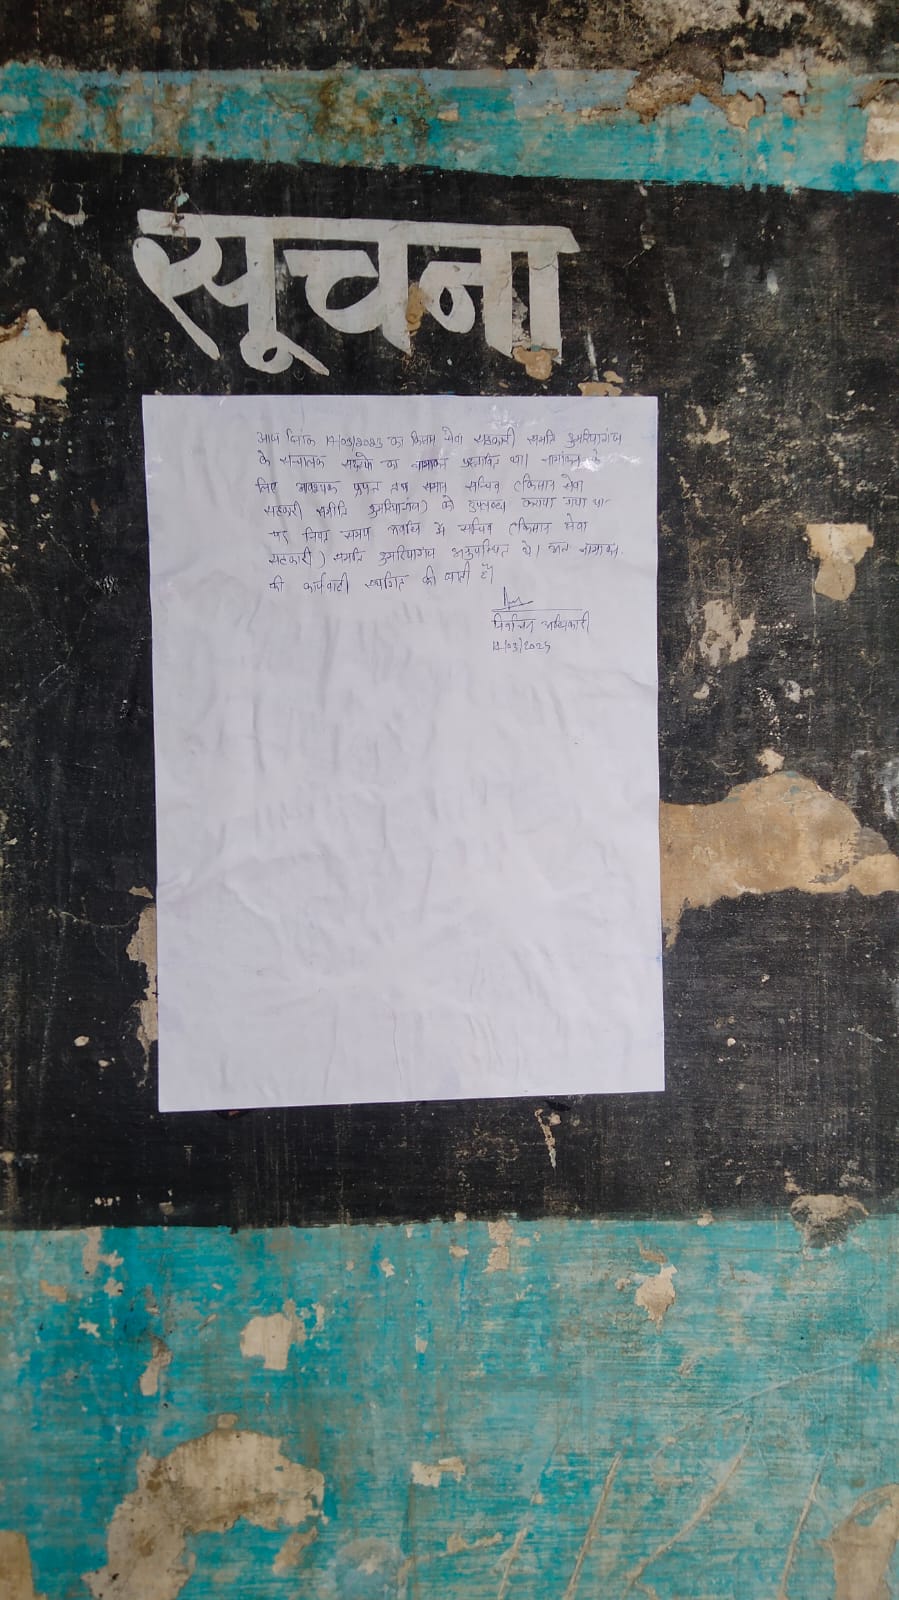 सूचना
आज दिनांक 14/03/2025 को किसान सेवा सहकारी समिति डुमरियागंज
के संचालक सदस्यों का नामांकन प्रस्तावित था। नामांकन के
लिए आवश्यक प्रपत्र सचिव (किसान सेवा
सहकारी समिति डुमरियागंज) को उपलब्ध कराया गया था
पर नियत समय अवधि में सचिव (किसान सेवा
सहकारी) समिति डुमरियागंज अनुपस्थित थे। अतः नामांकन
की कार्यवाही स्थगित की जाती है।
निर्वाचन अधिकारी
14/03/2025